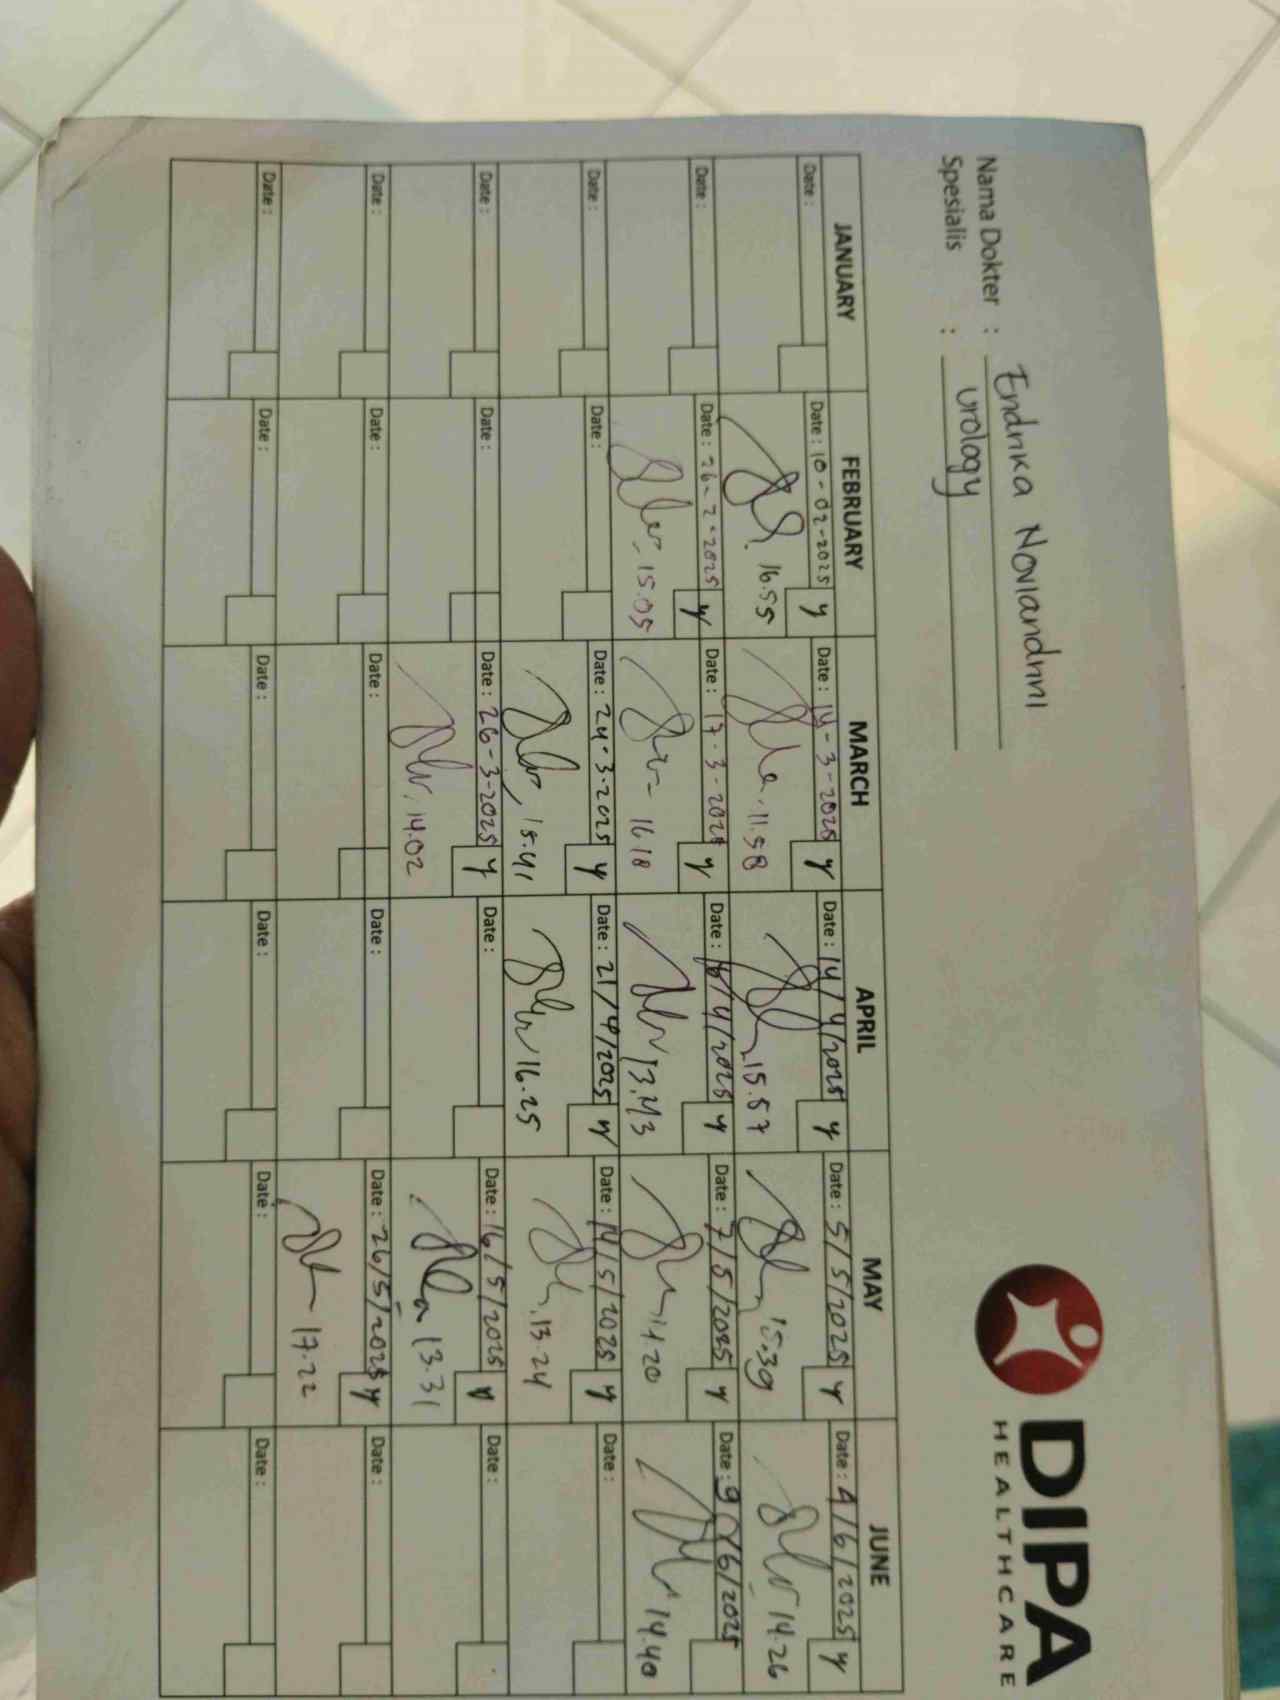 Nama Dokter : Endrika Noviandrini
Spesialis : Urology
DIPA
HEALTHCARE
JANUARY FEBRUARY MARCH APRIL MAY JUNE
Date : Date : 10-02-2025 y Date : 14-3-2025 y Date : 14/4/2025 y Date : 5/5/2025 y Date : 4/6/2025 y
16.55 11.58 15.57 15.39 14.26
Date : Date : 26-2-2025 y Date : 17-3-2025 y Date : 16/4/2025 y Date : 7/5/2025 y Date : 9/6/2025
15.05 16.18 13.43 14.20 14.40
Date : Date : Date : 24-3-2025 y Date : 21/4/2025 y Date : 14/5/2025 y Date :
15.41 16.25 13.24
Date : Date : Date : 26-3-2025 y Date : Date : 16/5/2025 Date :
14.02 13.31
Date : Date : Date : Date : Date : 26/5/2025 y Date :
17.22
Date : Date : Date : Date : Date : Date :